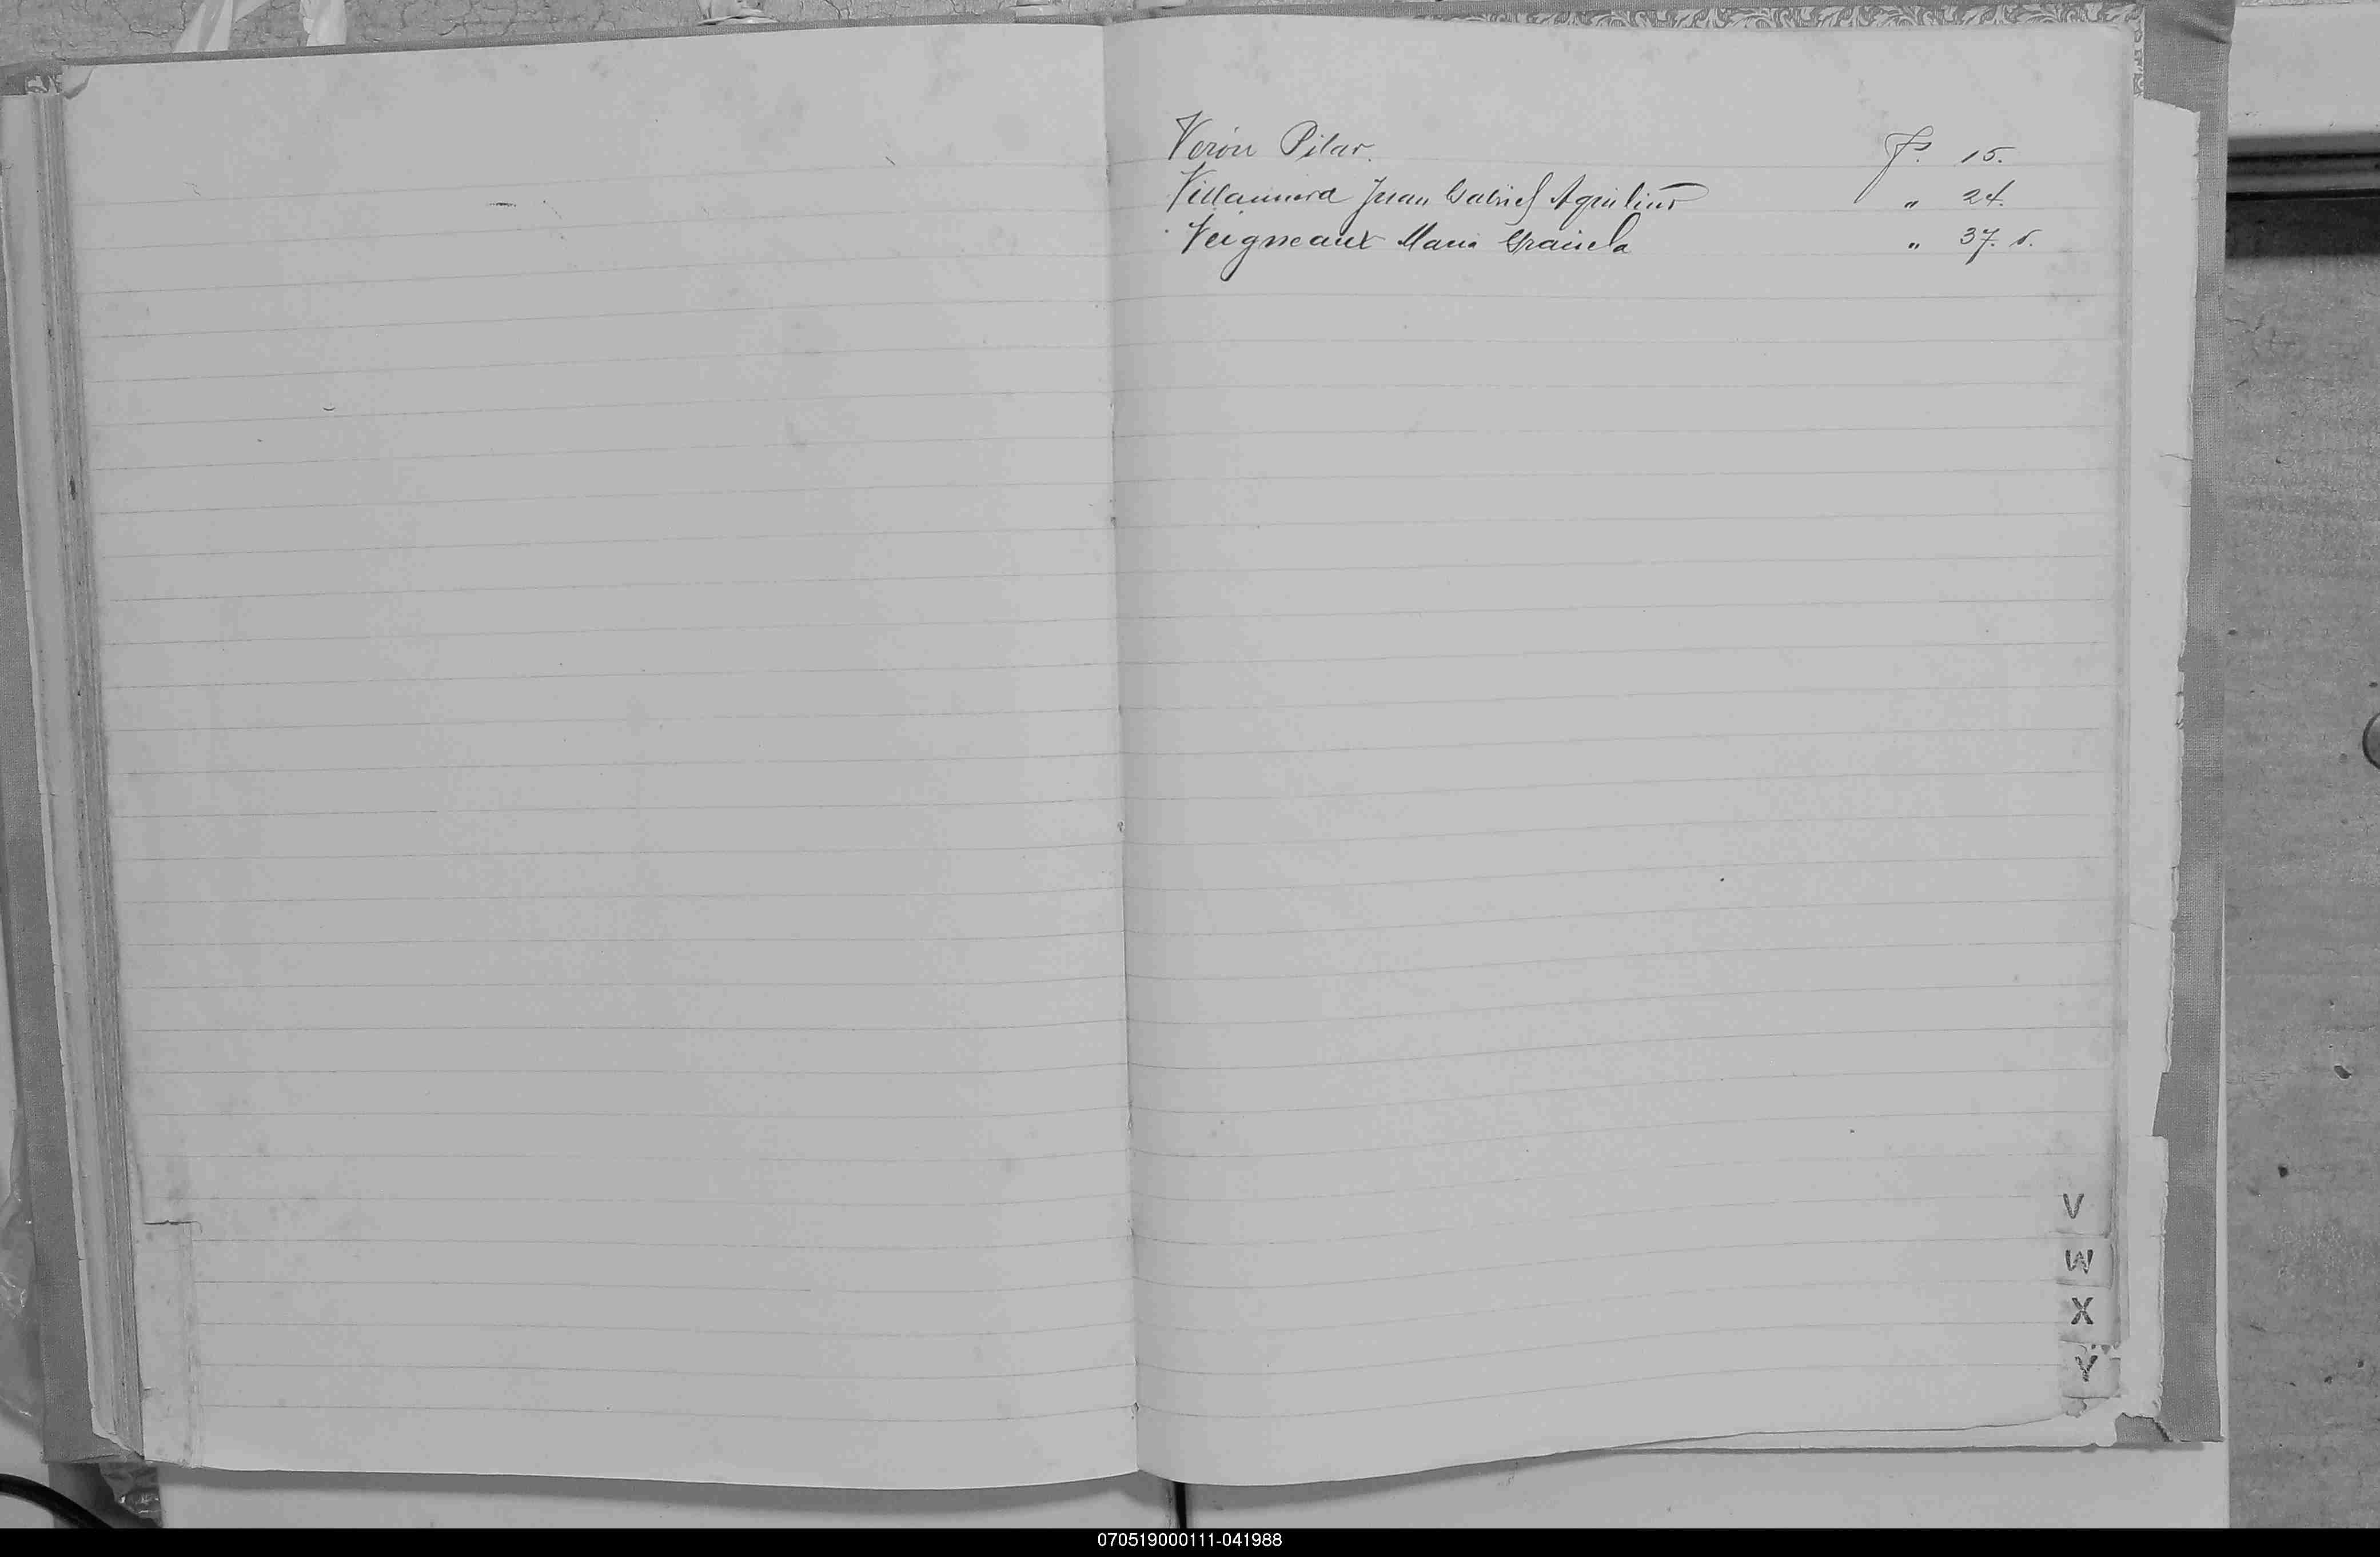 Verón Pilar. fs. 15.
Villanueva Juan Gabriel Aquilino " 24.
Veigneaux Maria Graciela " 37. v.
V
W
X
Y
070519000111-041988